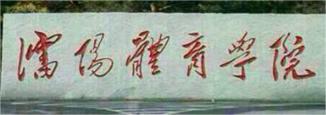 瀋陽體育學院